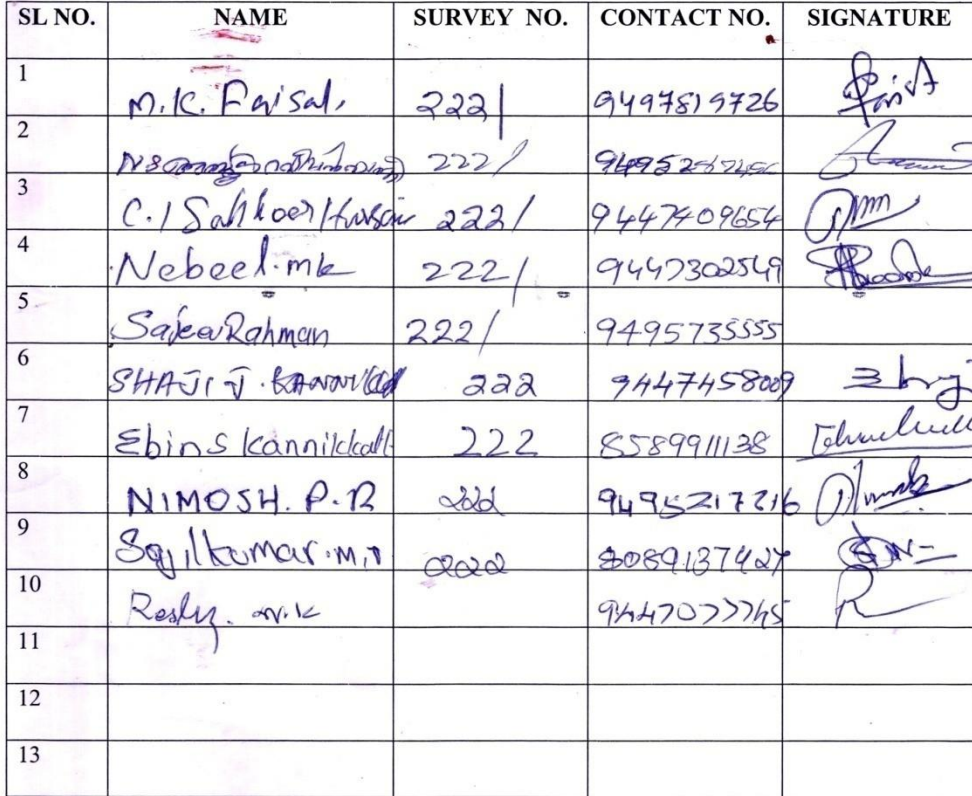 SL NO. NAME SURVEY NO. CONTACT NO. SIGNATURE
1 M.K. Faisal. 222/ 9497819726
2 222/
3 222/ 9447409654
4 Nebeel.mk 222/ 9447302549
5 Sajeev Rahman 222/ 9495735555
6 SHAJI J. 222 9447458009
7 Ebin S Kannikkatt 222 8589911138
8 NIMOSH. P.R 222 9495217216
9 Sajilkumar.M. 222 8089137427
10
11
12
13